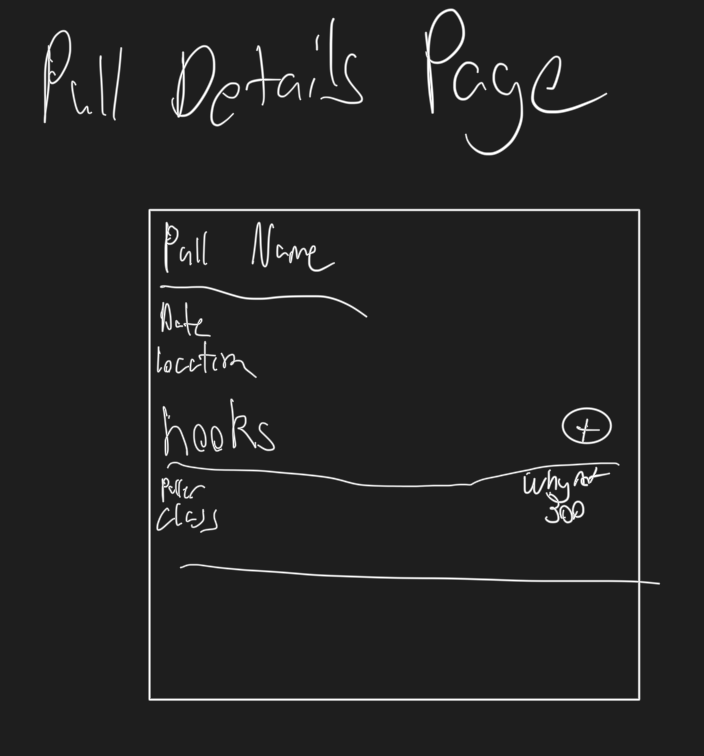 Pull Details Page
Pull Name
Date
location
hooks +
Puller
class
Why not
300